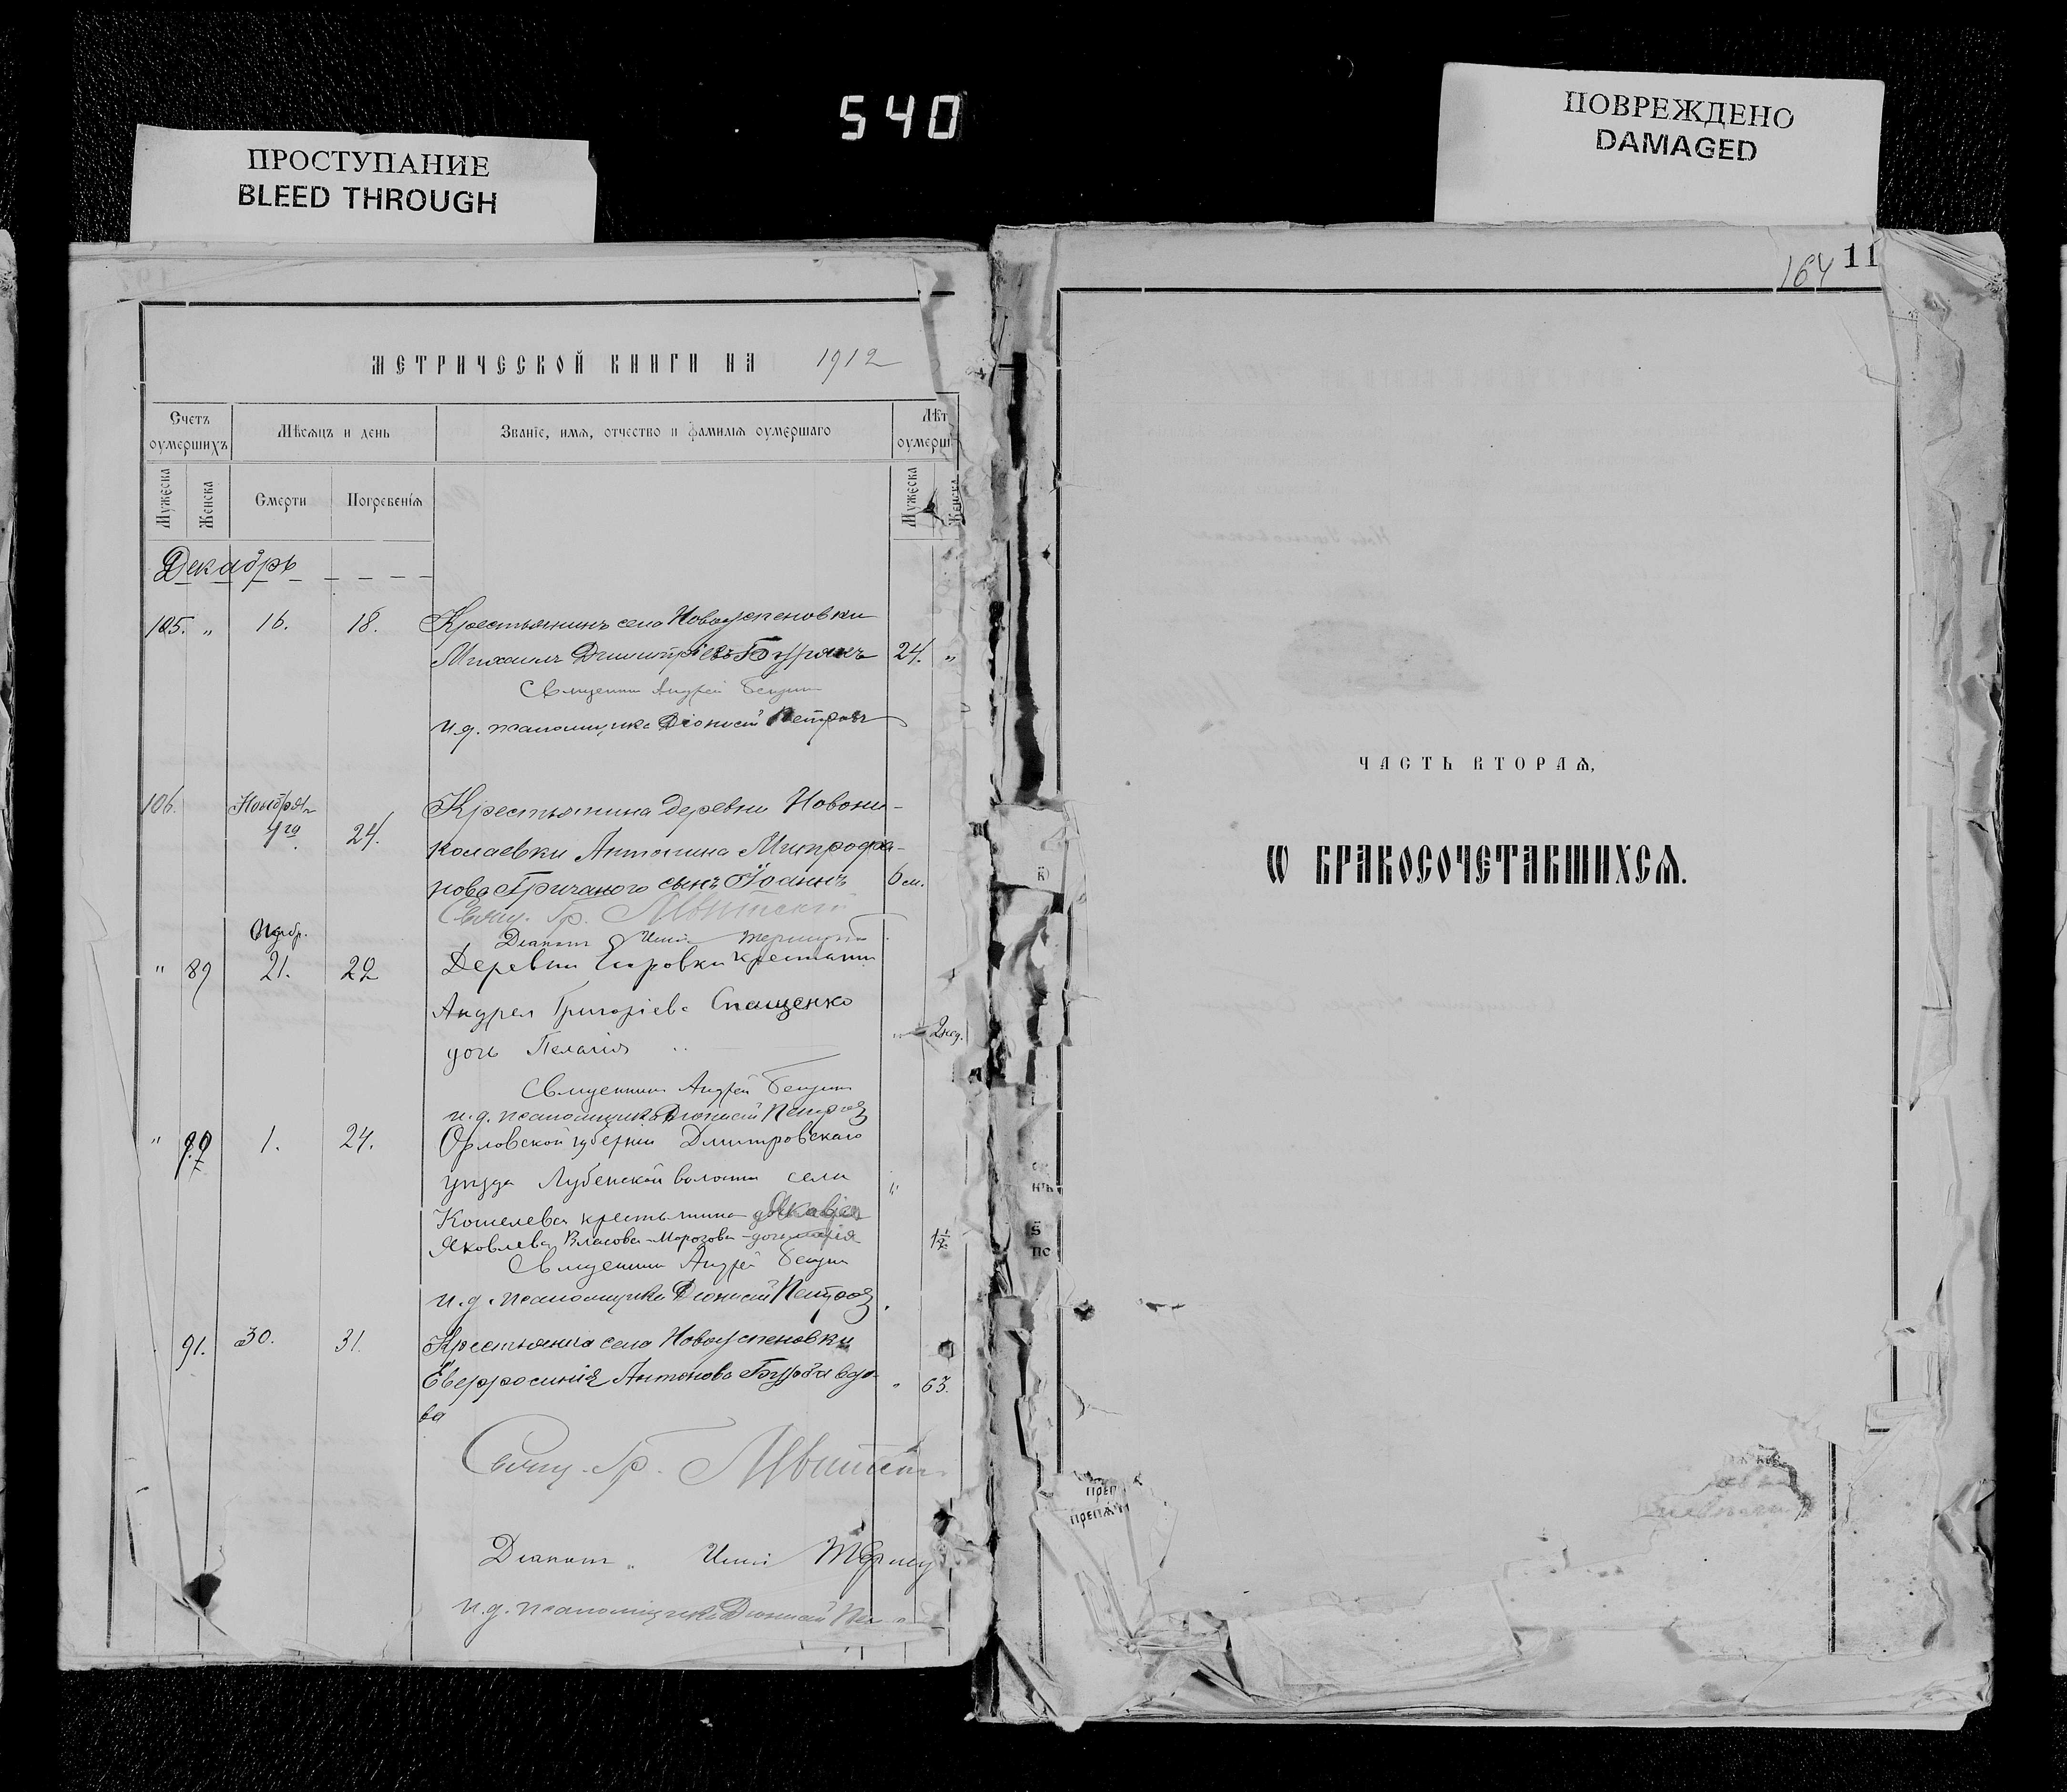 540
ПРОСТУПАНИЕ
BLEED THROUGH
ПОВРЕЖДЕНО
DAMAGED
МЕТРИЧЕСКОЙ КНИГИ НА 1912
Счетъ оумершихъ
Мѣсяцъ и день
Званіе, имя, отчество и фамилія оумершаго
Лѣт оумерш
Мужеска
Женска
Смерти
Погребенія
Мужеска
Женска
Декабрь
105. " 16. 18. Крестьянинъ села Новоуспеновки
Михаилъ Димитріевъ Бурякъ 24. "
Священникъ Андрей
и.д. псаломщика Діонисій Петровъ
106. Ноября 4го 24. Крестьянина деревни Новони-
колаевки Антонина Митрофа-
нова Гричаного сынъ Іоаннъ 6 м.
Свящ. Гр.
Діаконъ
" 89 Нояб. 21. 22 Деревни Егоровки крестьян
Андрея Григоріева Спащенко
дочь Пелагія " 2 нед.
Священникъ Андрей
и.д. псаломщика Діонисій Петровъ
" 90 1. 24. Орловской губерніи Дмитровскаго
уѣзда Лубенской волости села "
Кошелева крестьянина
Яковлева Власова-Морозова - дочь Марія 1½
Священникъ Андрей
и.д. псаломщика Діонисій Петровъ
91. 30. 31. Крестьянка села Новоуспеновки
Евфросинія Антонова вдо- " 63.
ва
Свящ. Гр.
Діаконъ
и.д. псаломщика Діонисій Пе
164 11
ЧАСТЬ ВТОРАЯ,
Ѡ БРАКОСОЧЕТАВШИХСЯ.